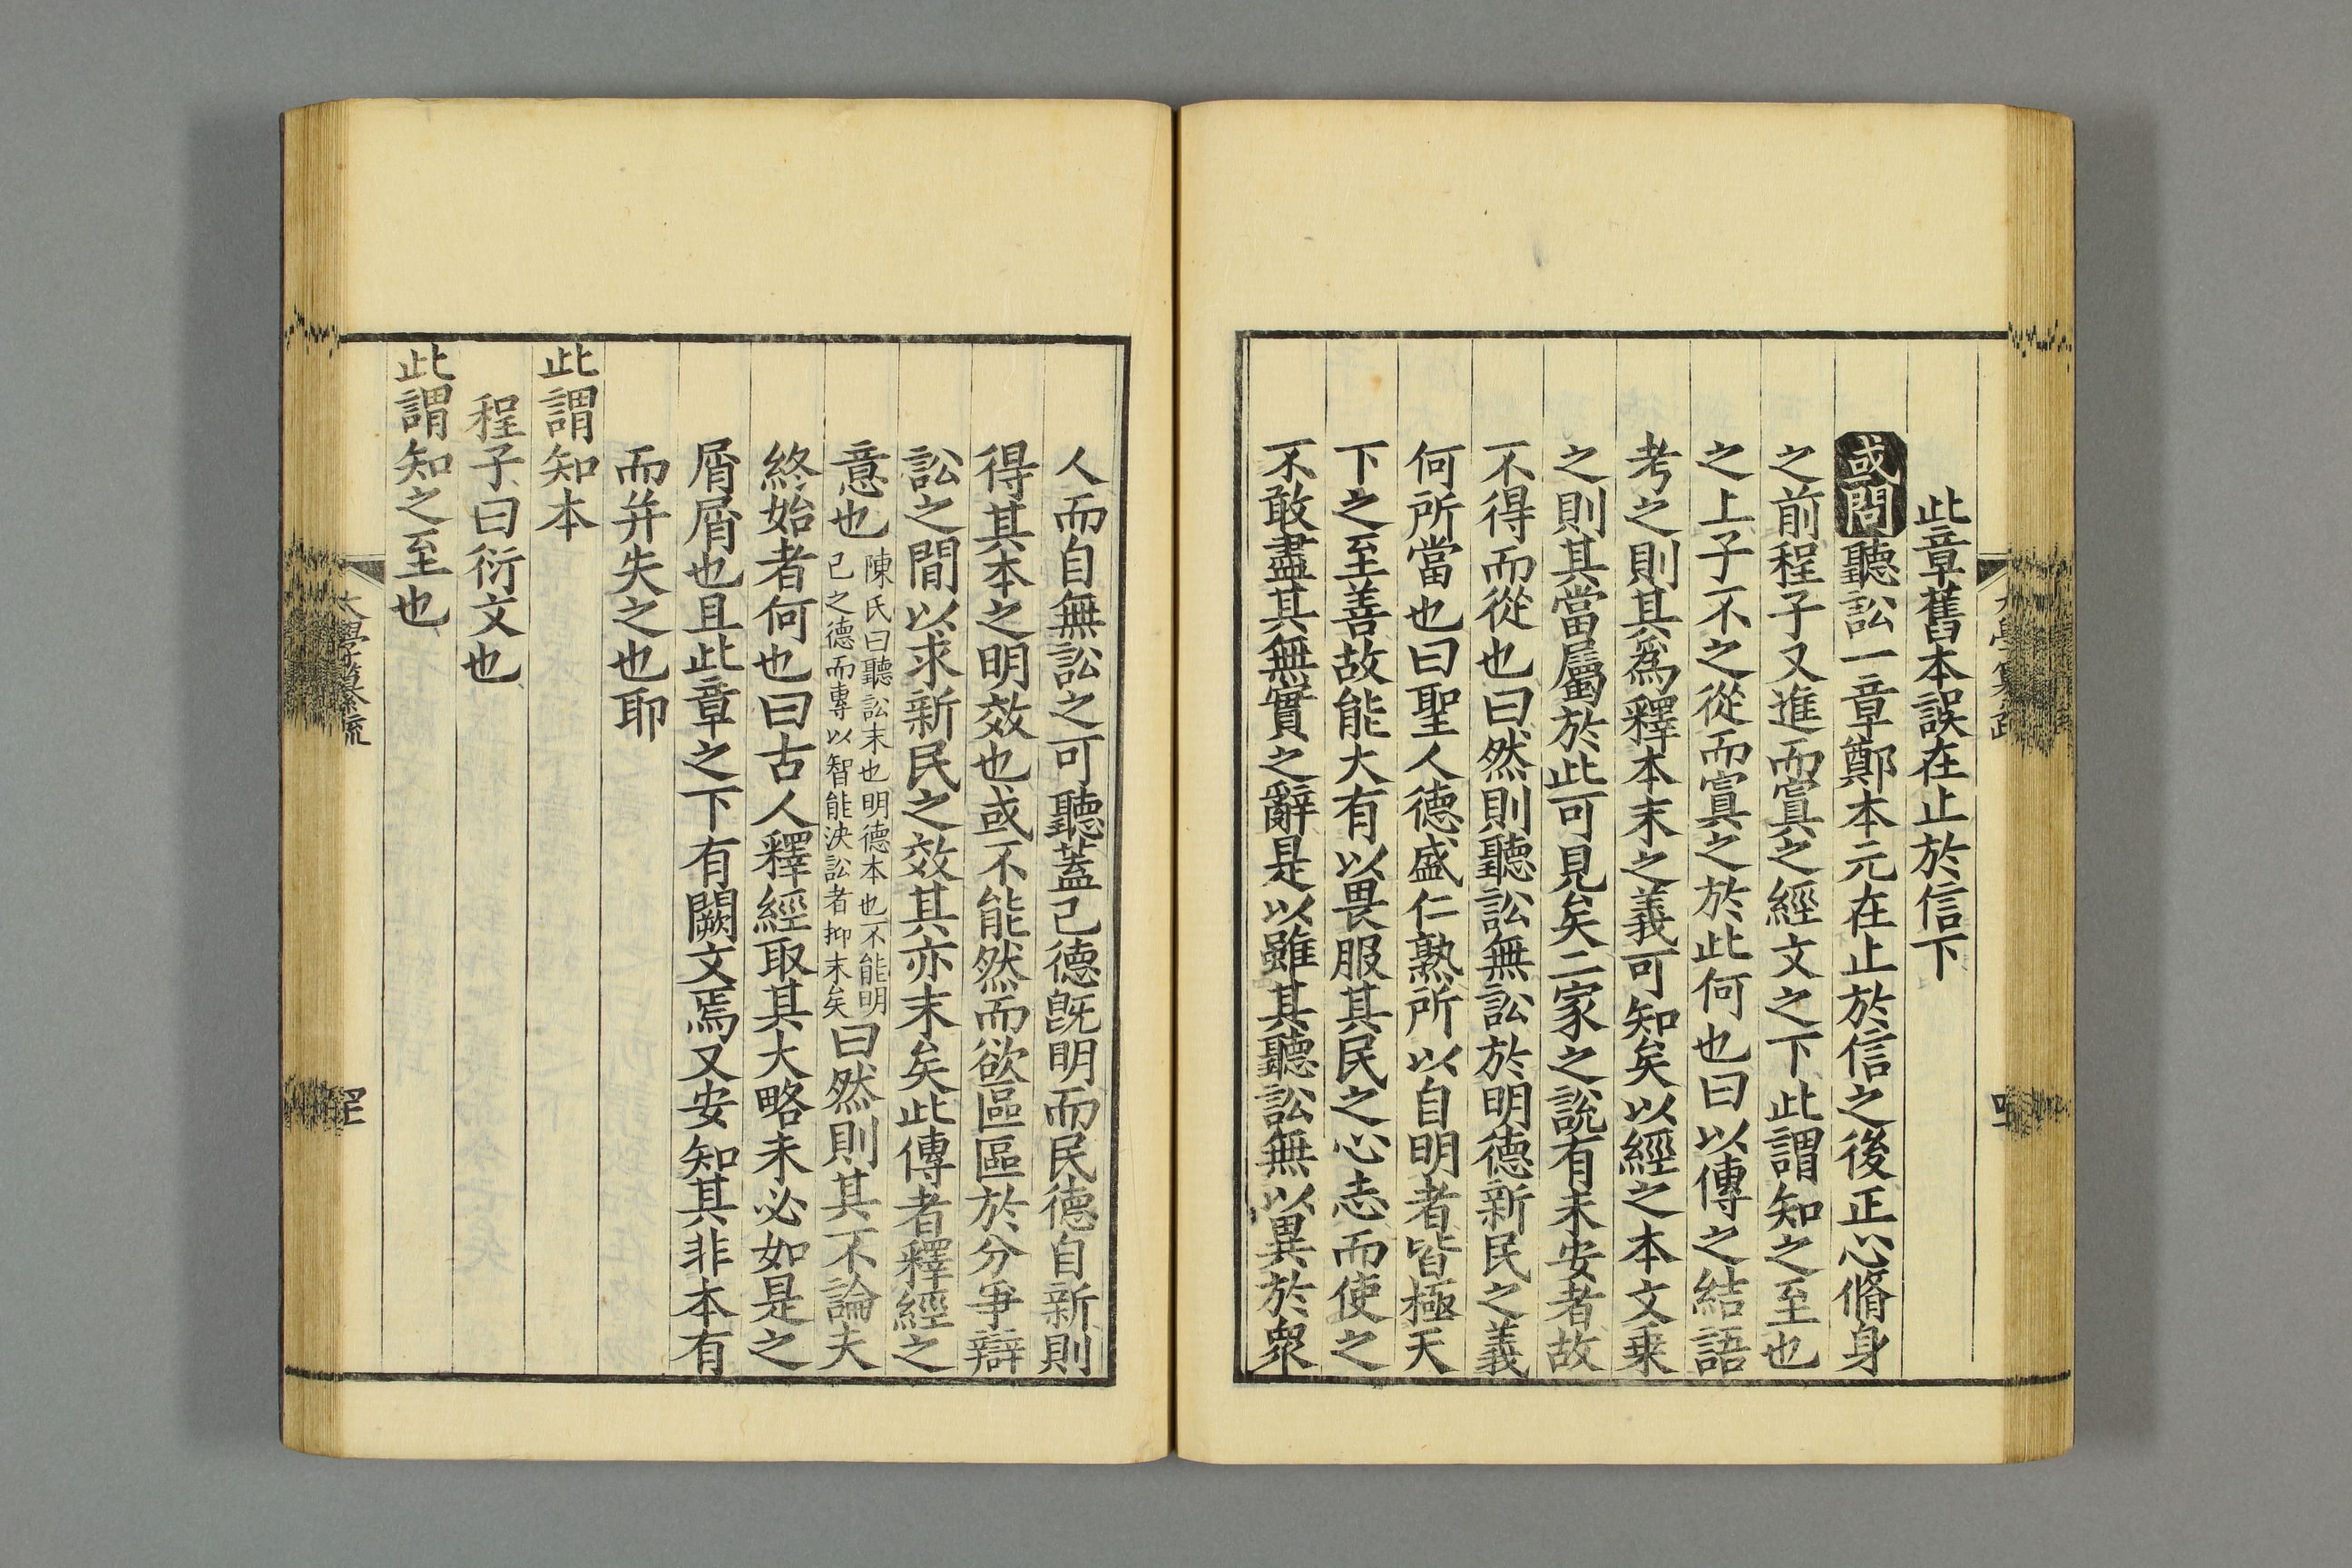 此章舊本誤在止於信下
或問聽訟一章鄭本元在止於信之後正心脩身
之前程子又進而寘之經文之下此謂知之至也
之上子不之從而寘之於此何也曰以傳之結語
考之則其爲釋本末之義可知矣以經之本文乗
之則其當屬於此可見矣二家之說有未安者故
不得而從也曰然則聽訟無訟於明德新民之義
何所當也曰聖人德盛仁熟所以自明者皆極天
下之至善故能大有以畏服其民之心志而使之
不敢盡其無實之辭是以雖其聽訟無以異於衆
人而自無訟之可聽蓋己德旣明而民德自新則
得其本之明效也或不能然而欲區區於分爭辯
訟之間以求新民之效其亦末矣此傳者釋經之
意也
陳氏曰聽訟末也明德本也不能明
己之德而專以智能決訟者抑末矣
曰然則其不論夫
終始者何也曰古人釋經取其大略未必如是之
屑屑也且此章之下有闕文焉又安知其非本有
而并失之也耶
此謂知本
程子曰衍文也
此謂知之至也
大學纂疏